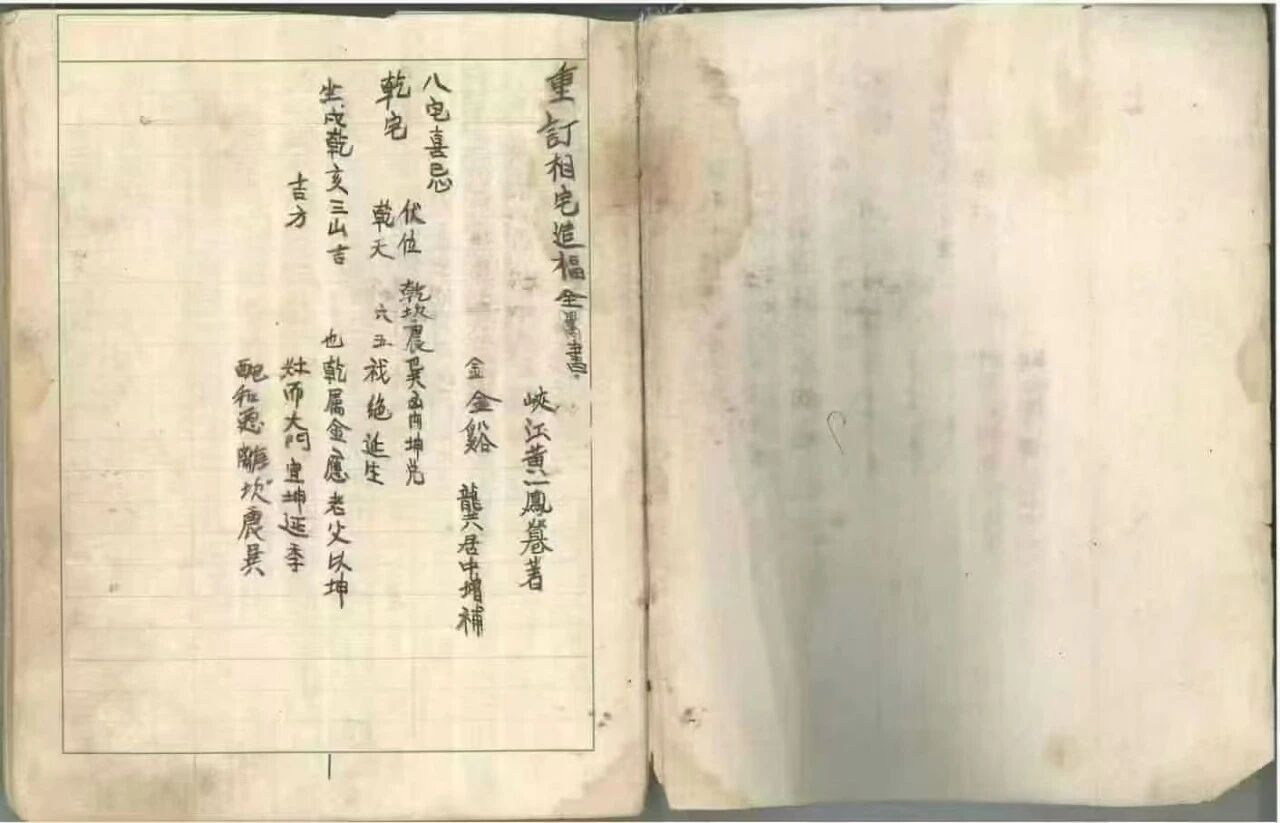 重訂相宅造福全書
峡江黄一鳳著
金 金谿 龔居中增補
八宅喜忌
乾宅 伏位 乾坎艮震巽离坤兑
乾天 六五祸绝延生
坐戌乾亥三山吉 也乾属金應老父以坤
吉方 灶而大門宜坤延季
配和惠離坎震巽